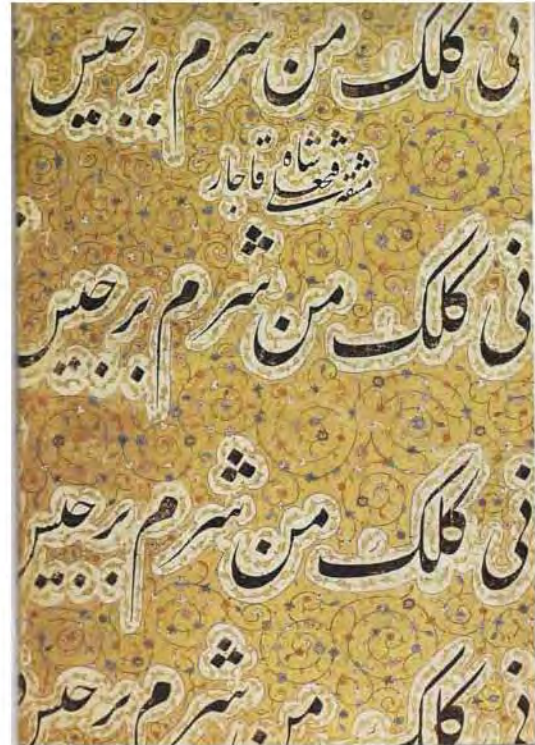 نی کلک من شرم برجیس
مشقه فتحعلی شاه قاجار
نی کلک من شرم برجیس
نی کلک من شرم برجیس
نی کلک من شرم برجیس